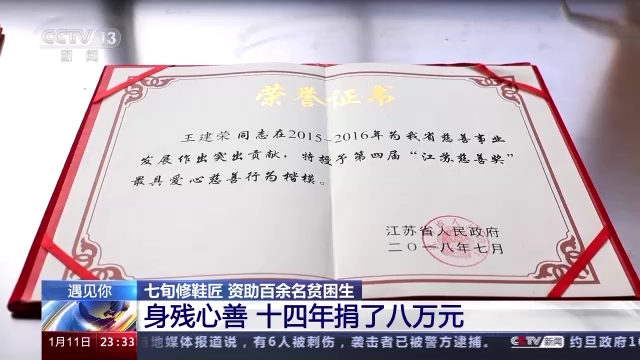 CCTV 13
新闻
荣誉证书
王建荣同志在2015-2016年为我省慈善事业
发展作出突出贡献，特授予第四届“江苏慈善奖”
最具爱心慈善行为楷模。
江苏省人民政府
二〇一八年七月
遇见你
七旬修鞋匠 资助百余名贫困生
身残心善 十四年捐了八万元
1月11日 23:33
地媒体报道说，有6人被刺伤，袭击者已被警方逮捕。
CCTV 新闻
约旦政府1